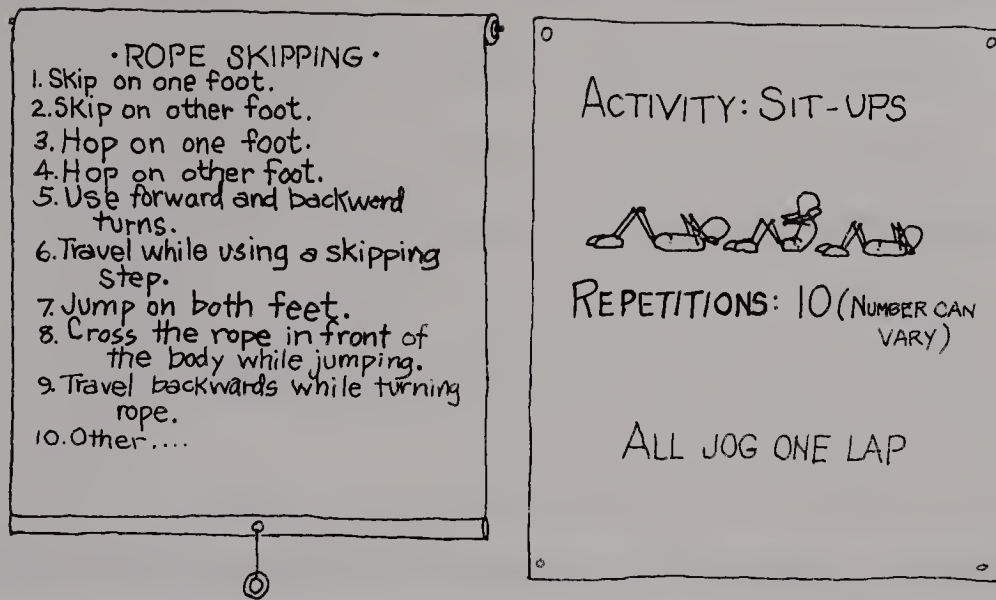 ·ROPE SKIPPING·
1. Skip on one foot.
2. Skip on other foot.
3. Hop on one foot.
4. Hop on other foot.
5. Use forward and backward
turns.
6. Travel while using a skipping
step.
7. Jump on both feet.
8. Cross the rope in front of
the body while jumping.
9. Travel backwards while turning
rope.
10. Other....
ACTIVITY: SIT-UPS
REPETITIONS: 10 (NUMBER CAN
VARY)
ALL JOG ONE LAP